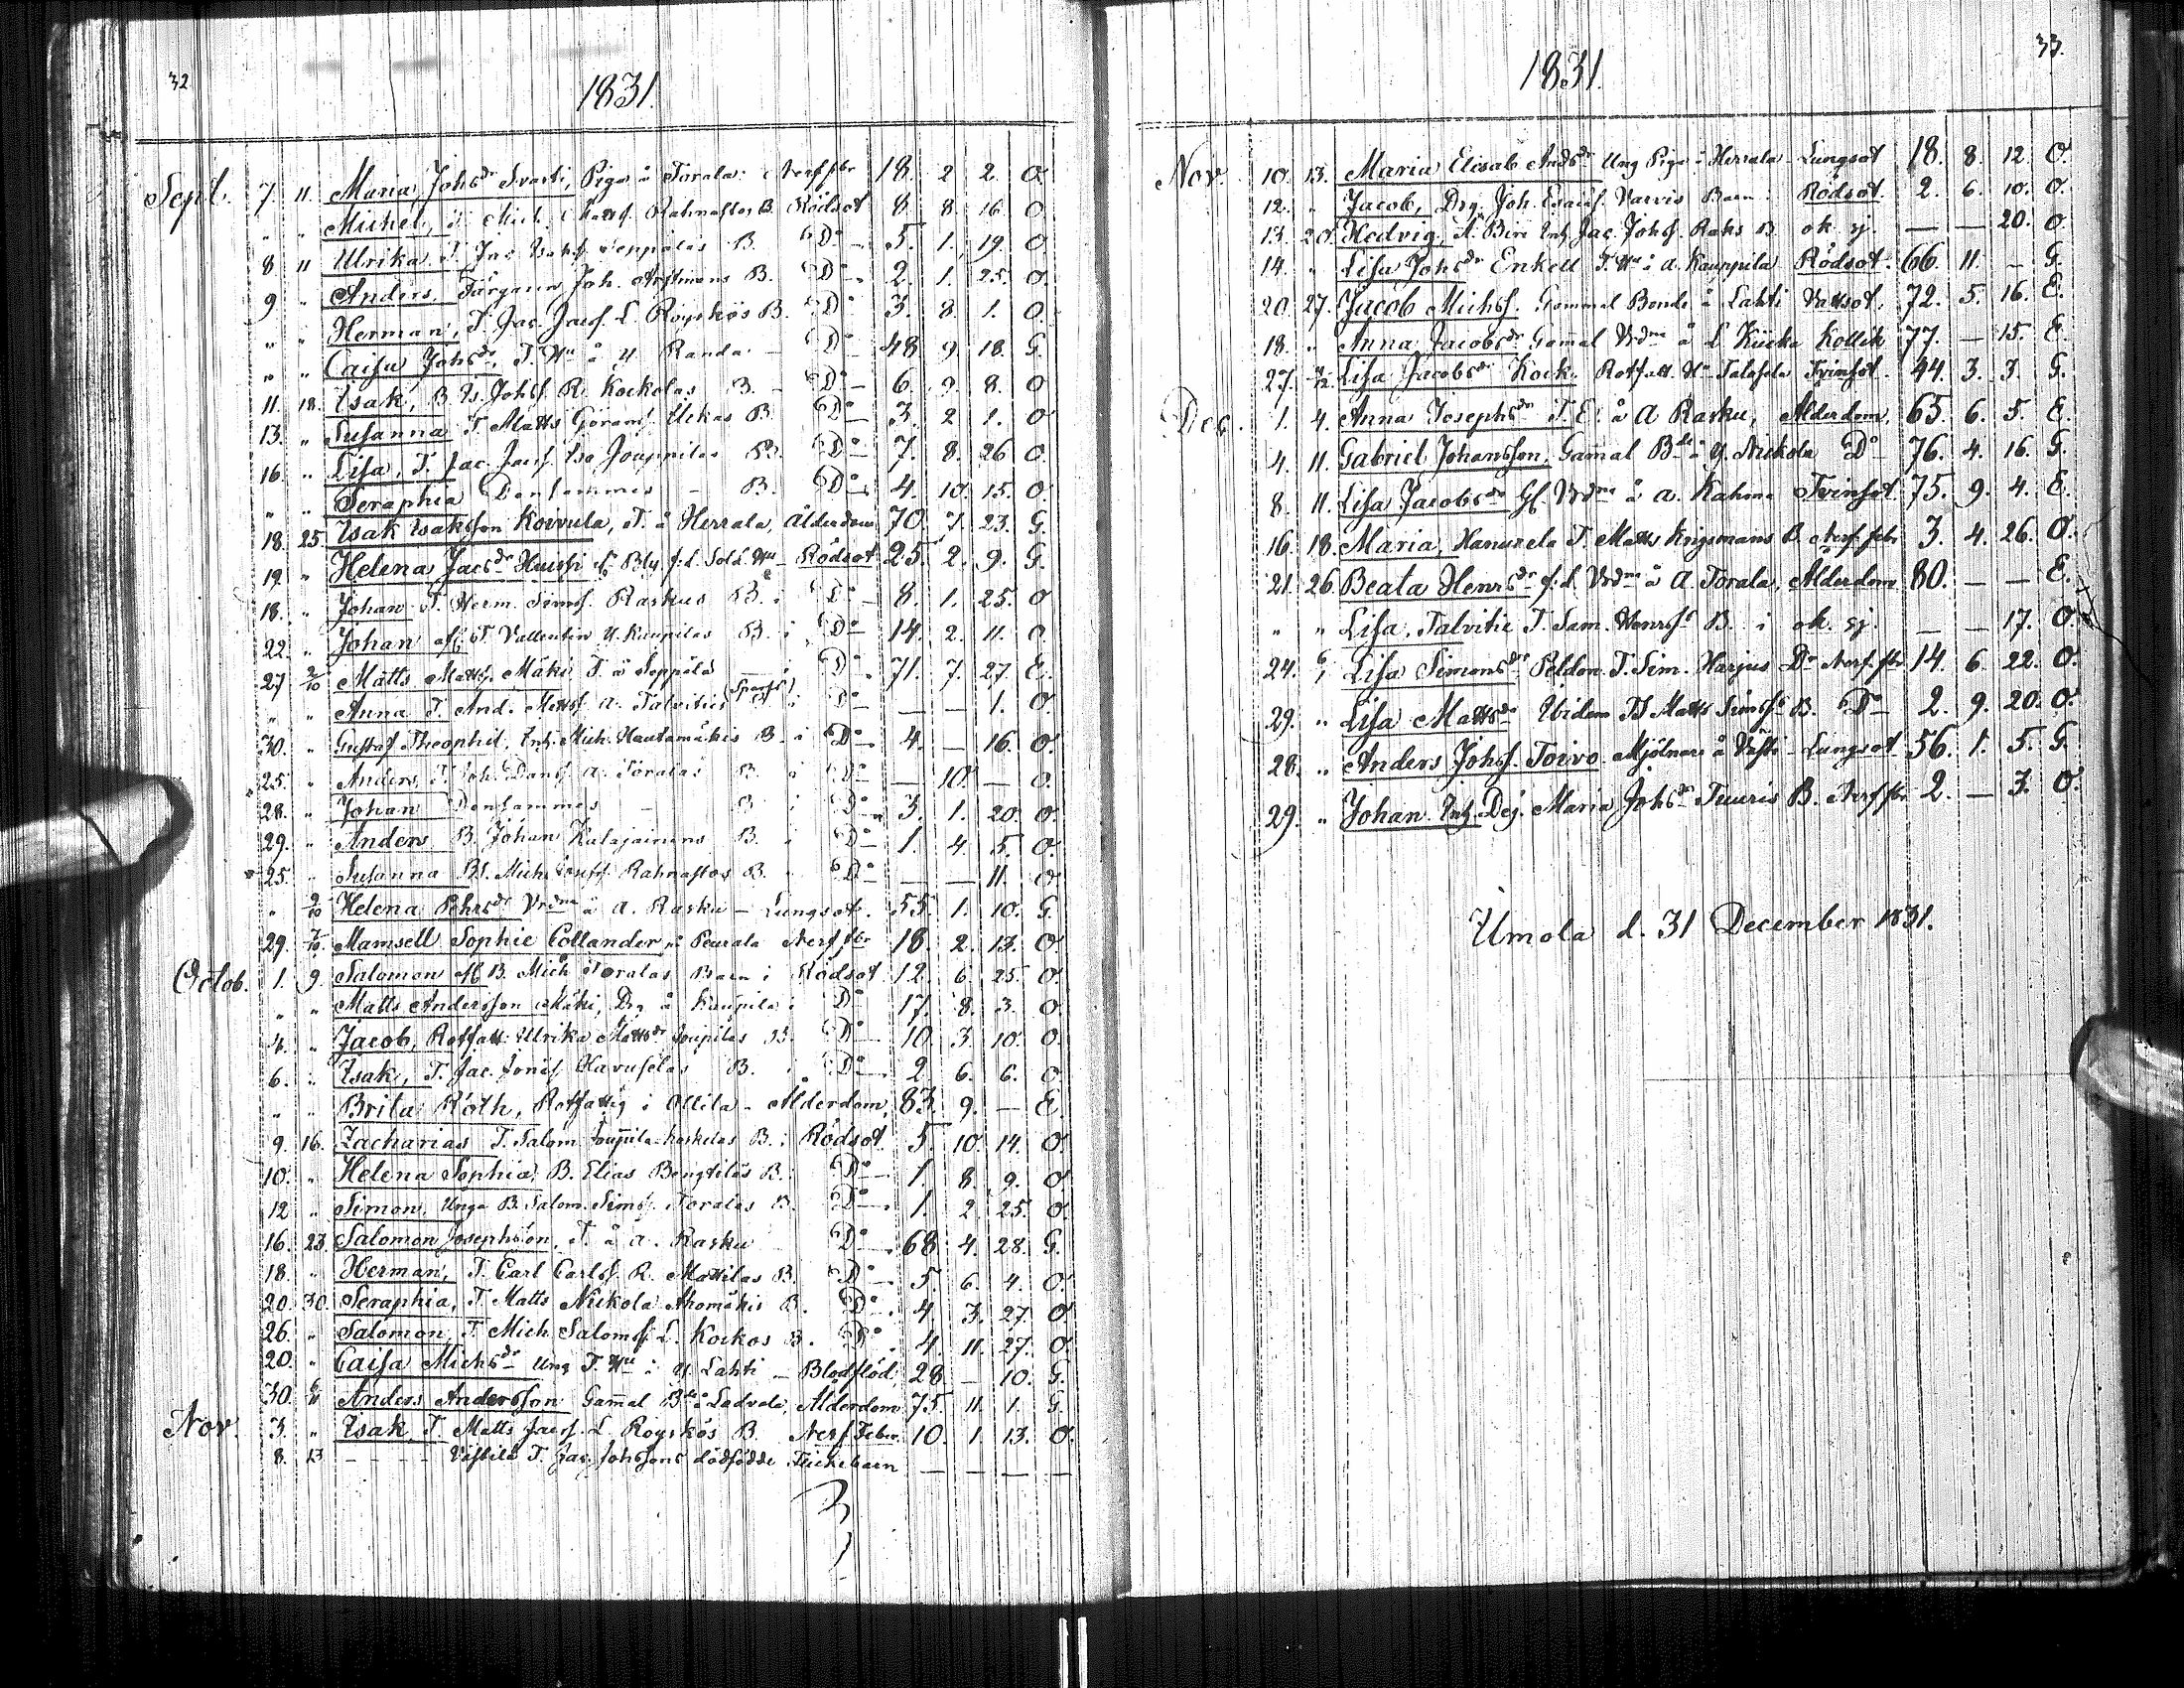 32
1831.
Sept. 7. 11. Maria Johsdr Svarti, Piga å Torala: Nerffbr 18. 2 2. O.
" " Michel, T. Mich. Mattss. Rahnastos B. Rödsot 8 8. 16. O
8 11 Ulrika T. Jac. Seppäläs B. Do 5. 1. 19. O.
9 " Anders, Färgaren Joh. B. Do 2. 1. 25. O.
" " Herman, T. Jac. Jacss. L. Röyskös B. Do 3. 8. 1. O.
" " Caisa Johsdr, T. Hu å Y. Randa - Do 48 9. 18. G.
11. 18. Isak, B. Is. Johss. R. Kockolas B. - Do 6. 9. 8. O
13. " Susanna T. Matts Görans. Uckas B. Do 3. 2 1. O
16. " Lisa, T. Jac. Jacss. Iso Jouppilas B. Do 7. 8. 26 O.
" " Seraphia Densammes - B. Do 4. 10. 15. O.
18. 25 Isak Isaksson Koivula, T. å Herrala, Ålderdom 70. 7. 23. G.
19. " Helena Jacsdr Huissi f.d. Sold. Hu Rödsot 25. 2. 9. G.
18. " Johan T. Herm. Simss. Raskus B. i Do 8. 1. 25. O
22. " Johan T. Vallentin Y. Kaupilas B. i Do 14. 2. 11. O.
27 2/10 Matts Mattss. Mäki T. å Seppälä i Do 71. 7. 27. E.
" " Anna T. And. Mattss. a. Talvities B. i Do — — 1. O.
30. " Gustaf Theophil, Inh. Mich. Hautamäkis B. i Do 4. — 16. O.
25. " Anders, T. Joh. Danss. a. Toralas B. i Do — 10. — O.
28. " Johan Densammes - B. i Do 3. 1. 20. O.
29. " Anders B. Johan Kalajainens B. i Do 1. 4. 5. O.
25. " Susanna Bd. Mich. Rahnastos B. " Do — — 11. O
" 9/10 Helena Pehrsdr Vrdna å a. Rasku - Lungsot. 55. 1. 10. G.
29. 7/10 Mamsell Sophie Collander på Peurala Nerffbr 18. 2. 13. O.
Octob. 1. 9. Salomon B. Mich Toralas Barn i Rödsot 12. 6. 25. O.
" " Matts Andersson Mäki, Drg å Kaupila i Do 17. 8. 3. O.
4. " Jacob, Rotfatt. Ulrika Mattsdr Joupilas B. Do 10. 3. 10. O.
6. " Isak, T. Jac. Jonäs. Havuselas B. i Do 2. 6. 6. O
" " Brita Roth, Rotfattig i Ollila - Ålderdom, 83. 9. — E.
9. 16. Zacharias T. Salom. Joupila Koskelas B. i Rödsot 5. 10. 14. O.
10. " Helena Sophia, B. Elias Bengtiläs B. Do 1. 8. 9. O
12 " Simon, Unga B. Salom. Simss. Toralas B. Do 1. 2. 25. O.
16. 23. Salomon Josephson, T. å a. Rasku Do 68 4. 28. G.
18. " Herman, T. Carl Carlss. R. Mattilas B. Do 5. 6. 4. O.
20. 30. Seraphia, T. Matts Niskola Ahomäkis B. Do 4. 3. 27. O.
26. " Salomon, T. Mich. Salomss. L. Kockos B. Do 4. 11. 27. O.
20. " Caisa Michsdr Ung T. Hu i Y. Lahti - Blodflöd. 28 — 10. G.
30. 6/11 Anders Andersson Gam̄al Bde å Ladvala, Ålderdom 75. 11. 1. G.
Nov. 3. " Isak, T. Matts Jacss. L. Röyskös B. Nerf Feber 10. 1. 13. O.
8. 13 - - - - Västilä T. Jac. Johssons dödfödde Flickebarn — — — —
33.
1831.
Nov. 10. 13. Maria Elisab. Andsdr Ung Piga i Herrala - Lungsot 18. 8. 12. O.
12. " Jacob, Drg. Joh. Esaiss. Varvis Barn i Rödsot. 2. 6. 10. O.
13. 20. Hedvig, Inh. Jac. Johss. Raks B. ok. sj. — — 20. O.
14. " Lisa Johsdr Enkell T. Hu i a. Kauppila Rödsot. 66. 11. — G.
20. 27. Jacob Michss. Gammal Bonde å Lahti Vattsot, 72. 5. 16. E.
18. " Anna Jacobsdr Gam̄al Vrdna å L Kiicka Kollik 77. — 15. E.
27. 3/12 Lisa Jacobsdr Kock, Rotfatt. Hu Talasela Tvinsot. 44. 3. 3. G.
Dec. 1. 4. Anna Josephsdr T. E. å A Rasku, Ålderdom, 65. 6. 5. E.
4. 11. Gabriel Johansson, Gam̄al Bde å Y. Niskola Do 76. 4. 16. G.
8. 11. Lisa Jacobsdr Gl. Vrdna å a. Kahma Tvinsot. 75. 9. 4. E.
16. 18. Maria, Hanuxela T. Matts Krigsmans B. Nerf feb. 3. 4. 26. O.
21. 26. Beata Henrsdr f.d. Vrdna å A Torala, Ålderdom 80. — — E.
" " Lisa, Talvitie T. Sam. Henrss. B. i ok. sj. — — 17. O.
24. 6/1 Lisa Simonsdr Peldon. T. Sim. Harjus Dr Nerf. fbr 14. 6. 22. O.
29. " Lisa Mattsdr Ibidem Matts Simss. B. Do 2. 9. 20. O.
28. " Anders Johss. Toivo Mjölnare å Västi - Lungsot 56. 1. 5. G.
29. " Johan Inh. Dej. Maria Johsdr Tuuris B. Nerffbr 2. — 3. O.
Ilmola d. 31 December 1831.